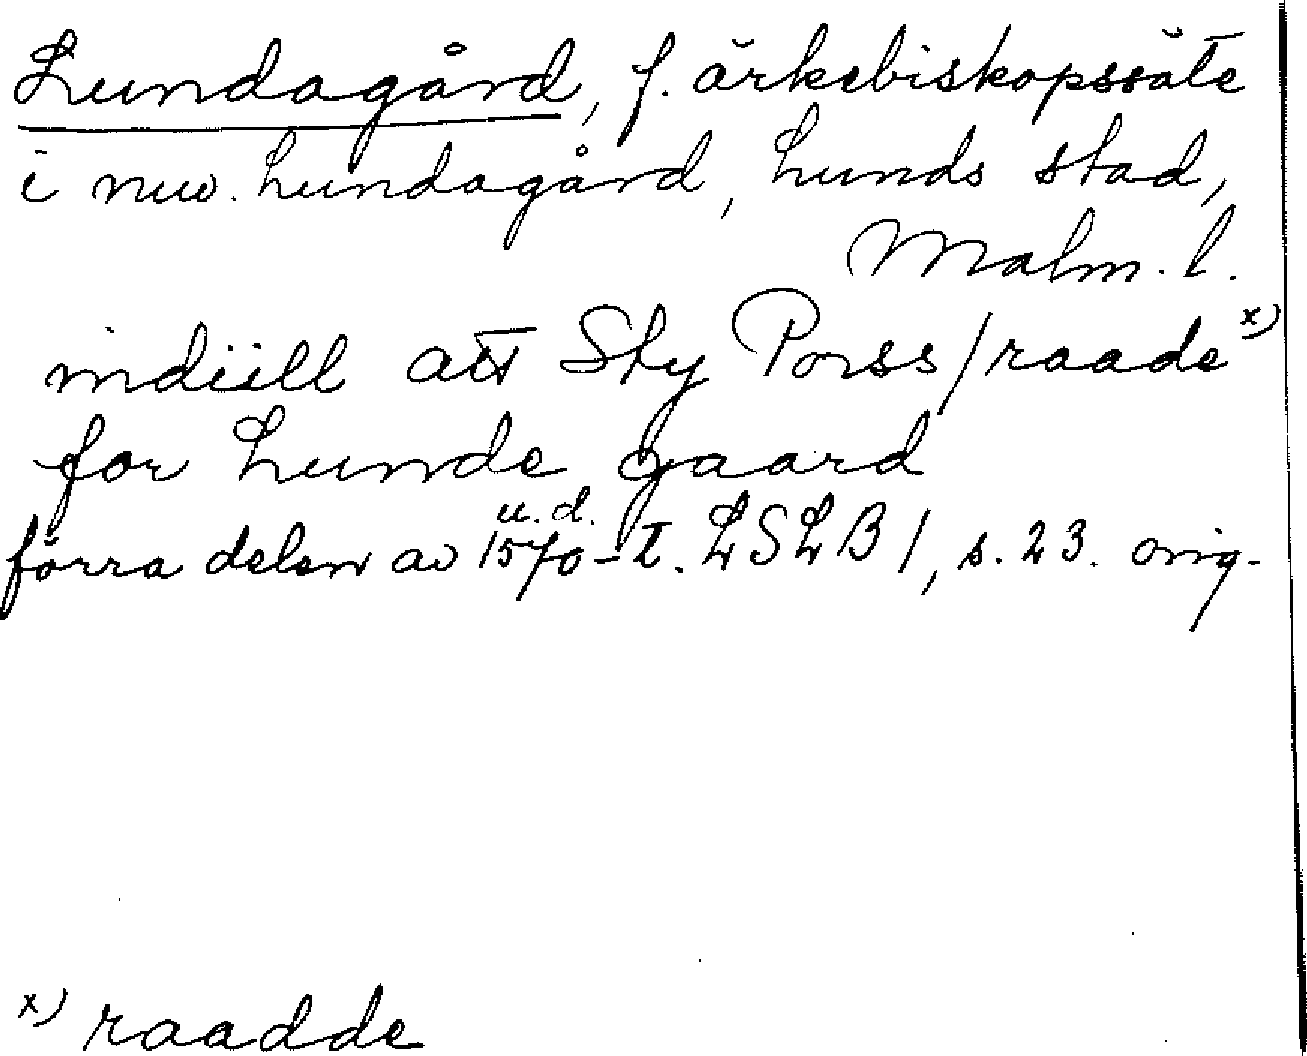 Lundagård, f. ärkebiskopssäte
i nuv. Lundagård, Lunds stad,
Malm. l.
indtill att Sty Porss / raade x)
for Lunde gaard
u.d.
förra delen av 1570-t. LSLB 1, s. 23. orig.
x) raadde